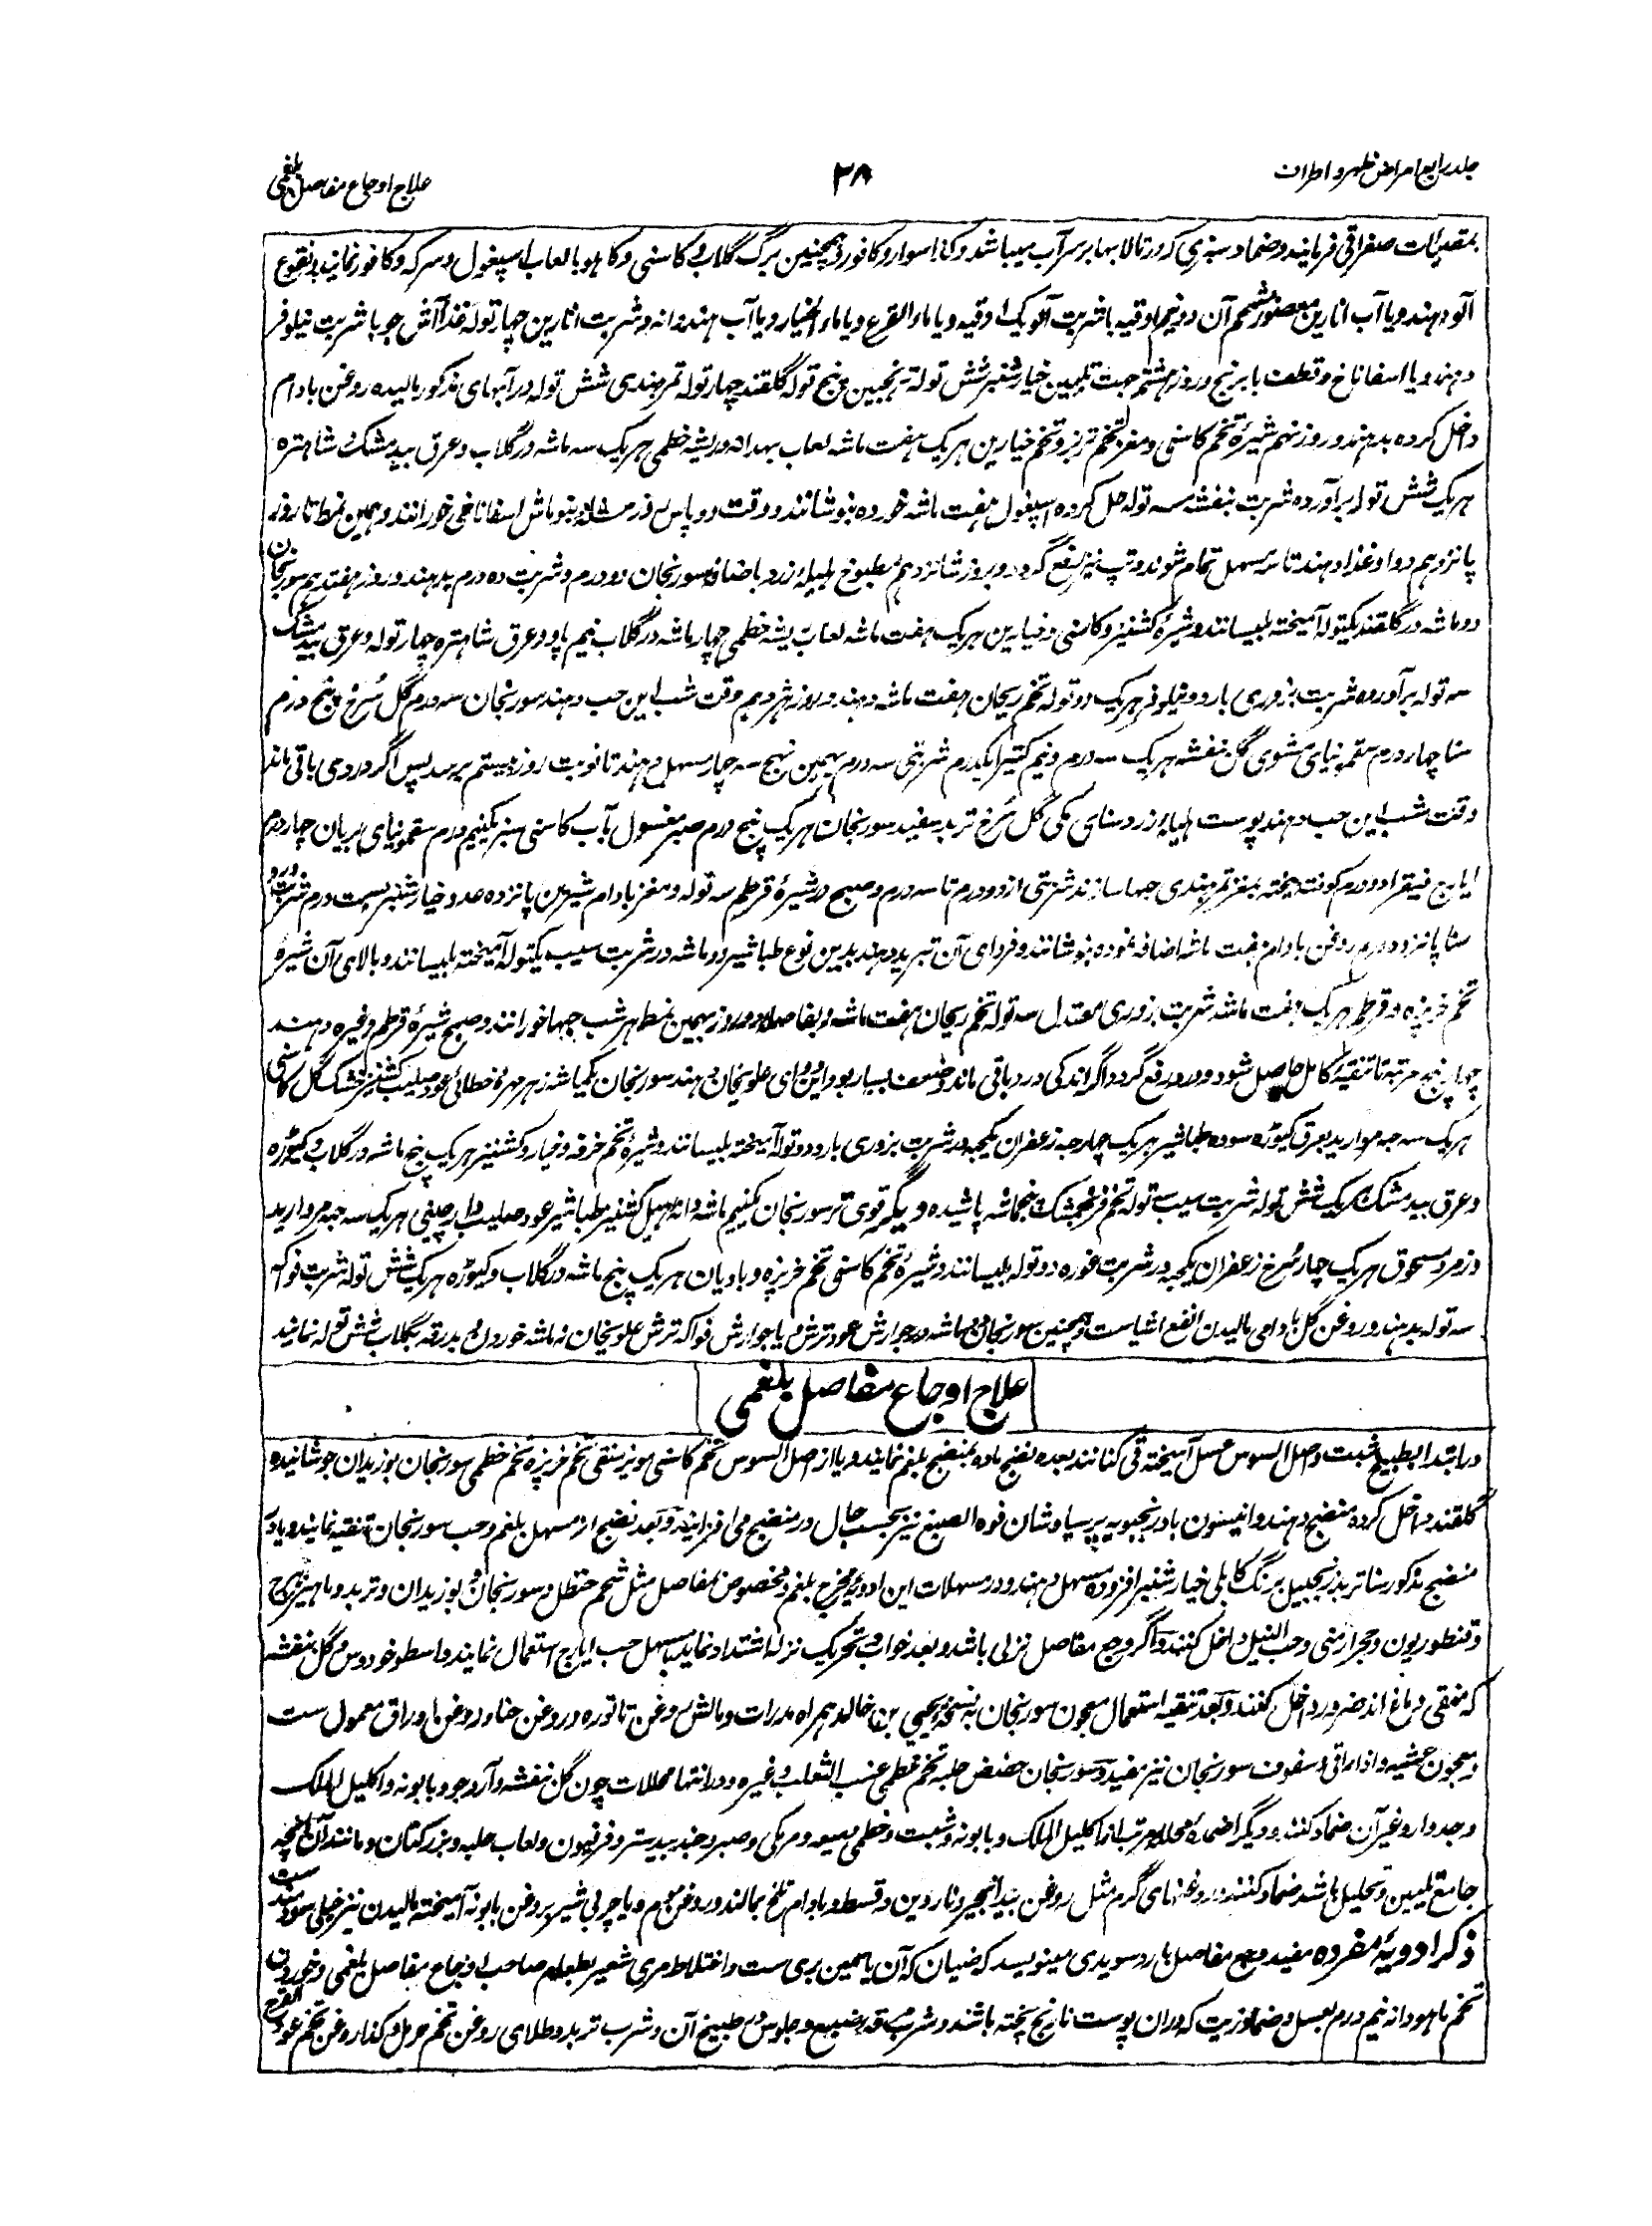 جلد رابع امراض ظهر و اطراف
۳۸
علاج اوجاع مفاصل بلغمی
بمقیئات صفرا قی فرمایند و ضماد سبزی که در تالابها بر سر آب میباشد و کذا سوار و کافور و همچنین برگ گلاب و کاسنی و کاهو بالعاب اسپغول و سرکه و کافور نمایند و نقوع
آلو دهند و یا آب انارین معصور بشحم آن دو نیم اوقیه با شربت آلو یک اوقیه و یا ماء القرع و یا ماء الخیار و یا آب هندوانه و شربت انارین چهار توله غذا آش جو با شربت نیلوفر
دهند و یا اسفاناخ و قطف با برنج و روز هشتم جهت تلیین خیارشنبر شش توله ترنجبین پنج توله گلقند چهار توله تمر هندی شش توله در آبهای مذکور مالیده روغن بادام
داخل کرده بدهند و روز نهم شیرهٔ تخم کاسنی و مغز تخم تربز و تخم خیارین هریک هفت ماشه لعاب بهدانه و ریشه خطمی هریک سه ماشه در گلاب و عرق بیدمشک شاهتره
هریک شش توله برآورده شربت بنفشه سه توله حل کرده اسپغول هفت ماشه خورده بنوشانند و وقت دو پاس روز بنوماش اسفاناخی خورانند و همین نمط تا روز
پانزدهم دوا و غذا دهند تا سه مسهل تمام شوند و تپ نیز رفع گردد و بروز شانزدهم مطبوخ هلیله زرد باضافه سورنجان دو درم و شربت ده درم بدهند و روز هفتدهم سورنجان
دو ماشه در گلقند یکتوله آمیخته بلیسانند و شیرهٔ کشنیز و کاسنی و خیارین هریک هفت ماشه لعاب ریشه خطمی چهار ماشه در گلاب نیم پاو و عرق شاهتره چهار توله و عرق بیدمشک
سه توله برآورده شربت بزوری بارد و نیلوفر هریک دو توله تخم ریحان هفت ماشه دهند و روز هژدهم وقت شب این حب دهند سورنجان سه درم گل سرخ پنج درم
سنا چهار درم سقمونیای مشوی گل بنفشه هریک سه درم و نیم کتیرا یکدرم شربتی سه درم بهمین نهج سه چار مسهل دهند تا نوبت روز بیستم برسد پس اگر دردی باقی ماند
وقت شب این حب دهند پوست هلیله زرد سنای مکی گل سرخ تربد سفید سورنجان هریک پنج درم صبر مغسول بآب کاسنی سبز یکنیم درم سقمونیای بریان چهار درم
ایارج فیقرا دو درم کوفته بیخته بمغز تمر هندی حبها سازند شربتی از دو درم تا سه درم و صبح در شیرهٔ قرطم سه توله و مغز بادام شیرین پانزده عدد خیارشنبر بیست درم شربت ورد
سنا پانزده درم روغن بادام هفت ماشه اضافه نموده بنوشانند و فردای آن تبرید دهند بدین نوع طباشیر دو ماشه در شربت سیب یکتوله آمیخته بلیسانند و بالای آن شیرهٔ
تخم خرپزه و قرطم هریک هفت ماشه شربت بزوری معتدل سه توله تخم ریحان هفت ماشه و بفاصله دو روز بهمین نمط هر شب حبها خورانند و صبح شیرهٔ قرطم و غیره دهند
چهار پنج مرتبه تا تنقیه کامل حاصل شود و درد رفع گردد و اگر اندکی درد باقی ماند و ضعف بسیار بود این دوای علویخان دهند سورنجان یکماشه زهرمهره خطائی عود صلیب کشنیز خشک گل کاسنی
هریک سه حبه مروارید بعرق کیوڑه سوده طباشیر هریک چار حبه زعفران یکحبه در شربت بزوری بارد دو توله آمیخته بلیسانند و شیرهٔ تخم خرفه و خیار و کشنیز هریک پنج ماشه در گلاب و کیوڑه
و عرق بیدمشک هریک شش توله شربت سیب توله تخم فرنجمشک پنجماشه پاشیده دیگر قوی تر سورنجان یکنیم ماشه دانه هیل کشنیز طباشیر عود صلیب هریک سه حبه مروارید
و زمرد مسحوق هریک چار سرخ زعفران یکحبه در شربت غوره دو توله بلیسانند و شیرهٔ تخم کاسنی تخم خرپزه و بادیان هریک پنج ماشه در گلاب و کیوڑه هریک شش توله شربت فواکه
سه توله بدهند و روغن گل بادامی مالیدن انفع اشیاست و همچنین سورنجان ماشه در جوارش عود ترش و یا جوارش فواکه ترش علویخان نه ماشه خوردن بدرقه بگلاب شش توله نمایند
علاج اوجاع مفاصل بلغمی
در ابتدا بطبیخ شبت و اصل السوس عسل آمیخته قی کنانند بعده نضج ماده بمنضج بلغم نمایند و یا از اصل السوس تخم کاسنی مویز منقی تخم خرپزه تخم خطمی سورنجان بوزیدان جوشانیده
گلقند داخل کرده منضج دهند و انیسون بادرنجبویه پرسیاوشان فوه الصبغ نیز بحسب حال در منضج می افزایند و بعد نضج از مسهل بلغم و حب سورنجان تنقیه نمایند و یا در
منضج مذکور سنا تربد زنجبیل برنگ کابلی خیارشنبر افزوده مسهل دهند و در مسهلات این ادویه مخرج بلغم و مخصوص بمفاصل مثل شحم حنظل و سورنجان و بوزیدان و تربد و ماهیزهرج
و قنطوریون و حجر ارمنی و حب النیل داخل کنند و اگر وجع مفاصل نزلی باشد و بعد خواب و تحریک نزله اشتداد نماید مسهل حب ایارج استعمال نمایند و اسطوخودوس و گل بنفشه
که منقی دماغ اند ضرور داخل کنند و بعد تنقیه استعمال معجون سورنجان به نسخه یحیی بن خالد همراه مدرات و مالش روغن تاتوره و روغن حنا و روغن اوراق معمول ست
و معجون عشبه و اذاراقی و سفوف سورنجان نیز مفید و سورنجان حضض حلبه تخم خطمی عنب الثعلب و غیره و در انتها محللات چون گل بنفشه و آرد جو و بابونه و اکلیل الملک
و جدوار و غیر آن ضماد کنند و دیگر اضمدهٔ محلله مرتب از اکلیل الملک و بابونه و شبت و خطمی میعه و مر مکی و صبر و جند بیدستر و فرفیون و لعاب حلبه و بزر کتان و مانند آن آنچه
جامع تلیین و تحلیل باشد ضماد کنند و روغنهای گرم مثل روغن بیدانجیر و ناردین و قسط و بادام تلخ بمالند و روغن موم و یا چربی شیر بروغن بابونه آمیخته مالیدن نیز خیلی سودمند ست
ذکر ادویهٔ مفرده مفید وجع مفاصل بارد سویدی مینویسد که ضیان که آن یاسمین بری ست و اختلاط مری شعیر بطعام صاحب اوجاع مفاصل بلغمی و خوردن
تخم ماهودانه نیم درم بعسل و ضماد زیت که دران پوست نارنج پخته باشند و شرب و جلوس در طبیخ آن و شرب تربد و طلای روغن تخم حرمل و کذا روغن تخم عود القرح